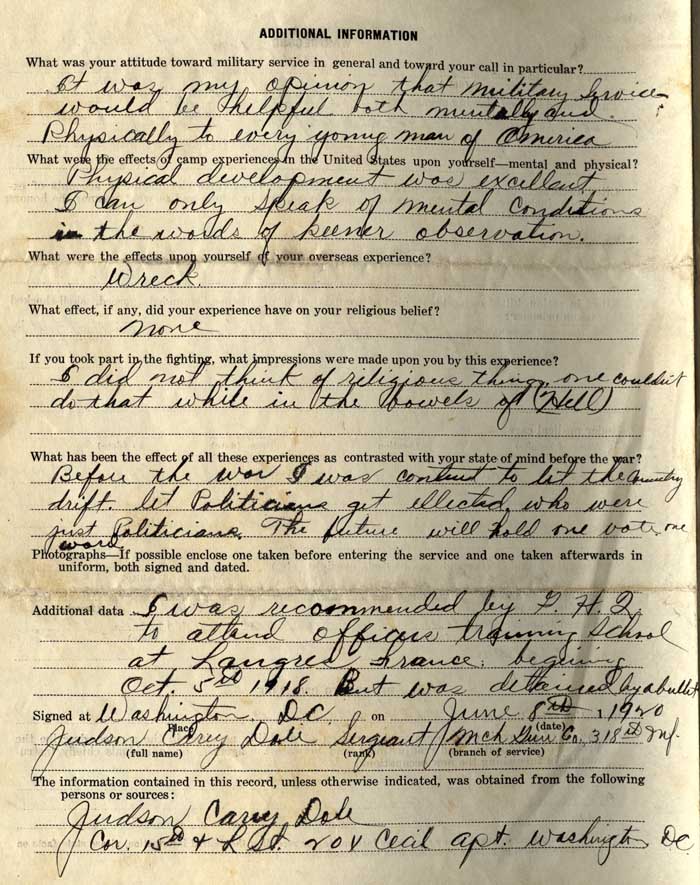 ADDITIONAL INFORMATION
What was your attitude toward military service in general and toward your call in particular?
It was my opinion that military service
would be helpful both mentally and
Physically to every young man of America
What were the effects of camp experiences in the United States upon yourself—mental and physical?
Physical development was excellant
I can only speak of mental conditions
in the words of keener observation.
What were the effects upon yourself of your overseas experience?
Wreck.
What effect, if any, did your experience have on your religious belief?
none
If you took part in the fighting, what impressions were made upon you by this experience?
I did not think of religious things, one couldn't
do that while in the bowels of (Hell)
What has been the effect of all these experiences as contrasted with your state of mind before the war?
Before the war I was content to let the Country
drift. let Politicians get ellected, who were
just Politicians. The future will hold one vote, one
word
Photographs—If possible enclose one taken before entering the service and one taken afterwards in
uniform, both signed and dated.
Additional data I was recommended by G. H. Q.
to attend officers training School
at Langres France, begining
Oct. 5th 1918. But was detained by a bullet
Signed at Washington DC on June 8th 1920
(Place) (date)
Judson Carey Dole Sergeant Mch Gun Co., 318th Inf.
(full name) (rank) (branch of service)
The information contained in this record, unless otherwise indicated, was obtained from the following
persons or sources:
Judson Carey Dole
Cor. 15th & L St. Cecil apt. Washington DC